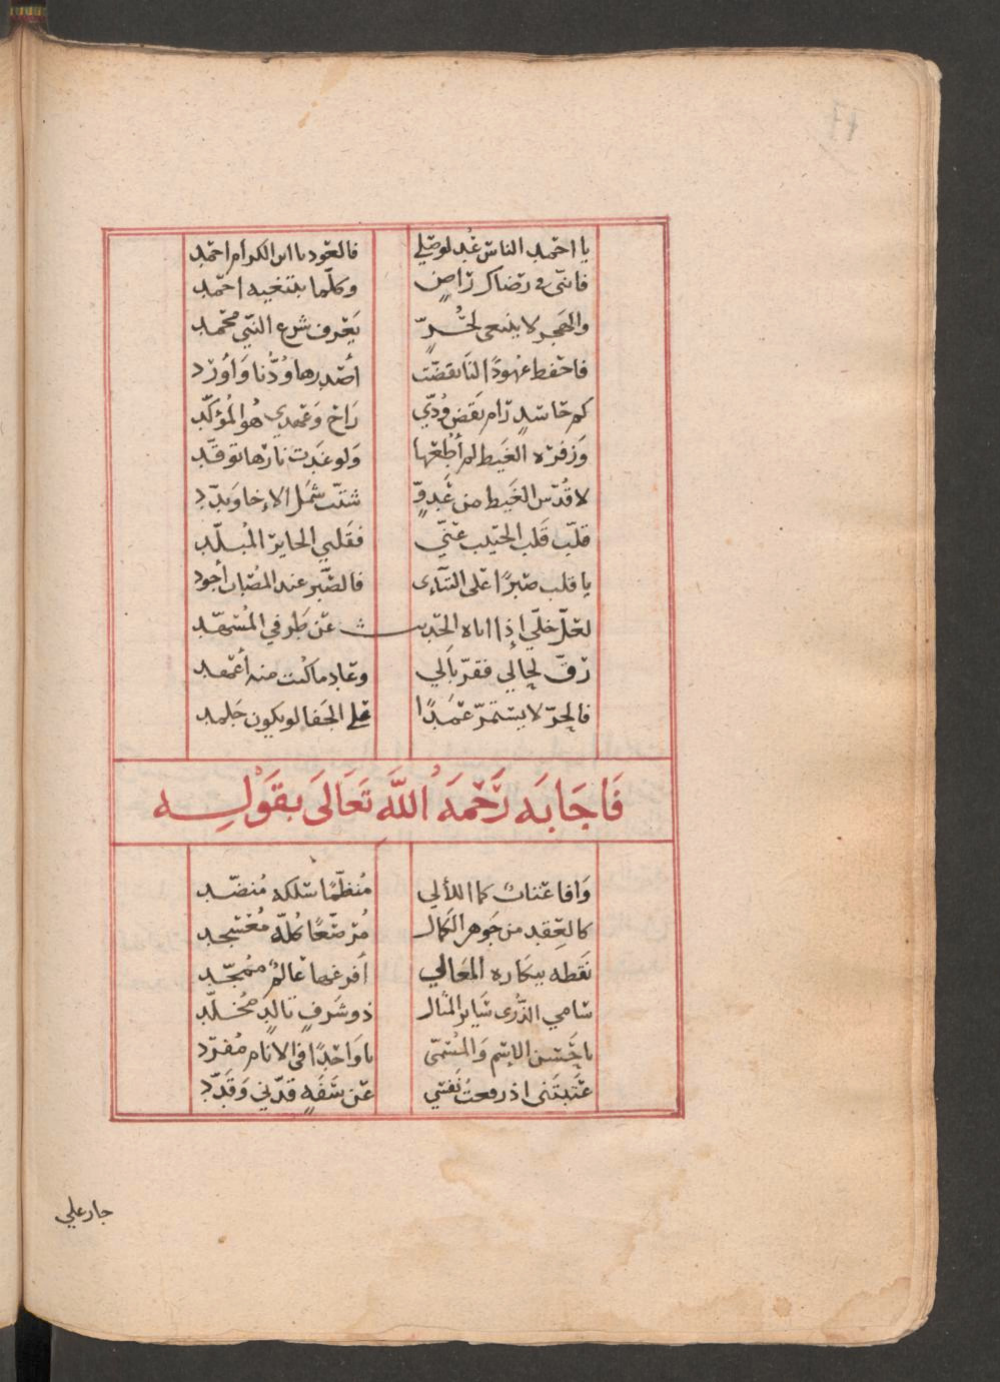 يا احمد الناس عُد لوصلي فالعود يا ابن الكرام احمد
فانني في رضاك راضٍ وكلما يبتغيه احمد
والهجر لا ينبغي لحُرٍّ يعرف شرع النبي محمد
فاحفظ عهودًا لنا تقضّت أصدرها وُدُّنا وَأورَد
كم حاسدٍ رام نقض وُدّي رَاحَ وَعهدي هُو المُؤكّد
وَزفرة الغيظ لم أُطعها وَلو غدت نارها توقّد
لا قُدّس الغيظ من عَدوٍّ شتّت شمل الاخا وَبدّد
قلّب قلب الحبيب عنّي فقلبي الحاير المُبلّد
يا قلب صبرًا على التنائى فالصّبر عند المُصاب أجود
لعلّ خلّي إذا اتاه الحديث عن طرفي المُسهّد
رقّ لحالي فقرّ بالي وعاد ما كنت منه أعهد
فالحرّ لا يستمرّ عمدًا على الجفا لو يكون جلمد
فَاجَابَه رَحمَهُ اللَّه تَعَالَى بقَولِه
وَافا عتاب كما اللألي مُنظّمًا سلكه مُنضّد
كالعِقد من جَوهر الكمال مُرصّعًا كُلّه مُعَسجد
نقطه ببكاره المعَالي أفرغها عَالمٌ مُمجّد
سَامي الذُّرى سَاير المثال ذو شَرفٍ تالدٍ مُخلّد
يا حَسن الاسم وَالمُسمّى يا وَاحِدًا في الانام مُفرد
عَتبتَني اذ رفعتُ نَفسي عن سَفَهٍ قدّني وَقَدّد
جار علي